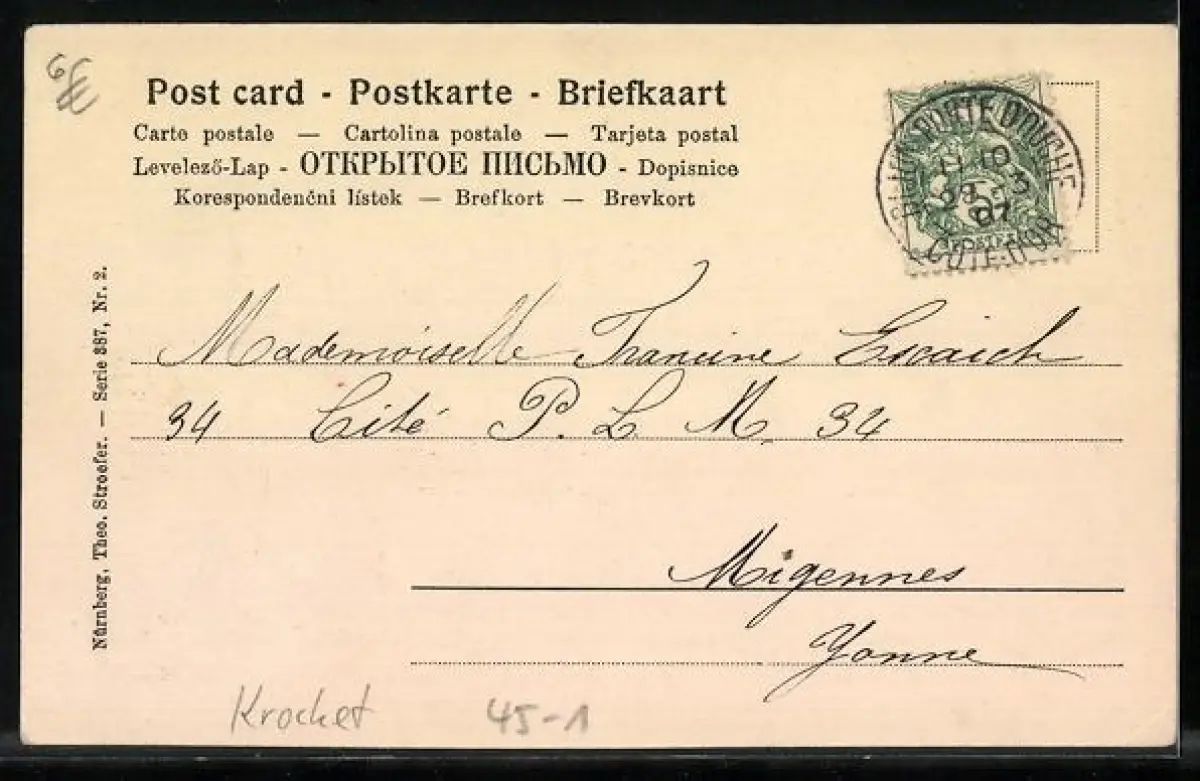 6€
Post card - Postkarte - Briefkaart
Carte postale — Cartolina postale — Tarjeta postal
Levelező-Lap - ОТКРЫТОЕ ПИСЬМО - Dopisnice
Korespondenční lístek — Brefkort — Brevkort
PORTE D'OUCHE
07
COTE-D'OR
Mademoiselle Francine Escaich
34 Cité P. L. M. 34
Migennes
Yonne
Nürnberg, Theo. Stroefer. — Serie 387, Nr. 2.
Krocket 45-1